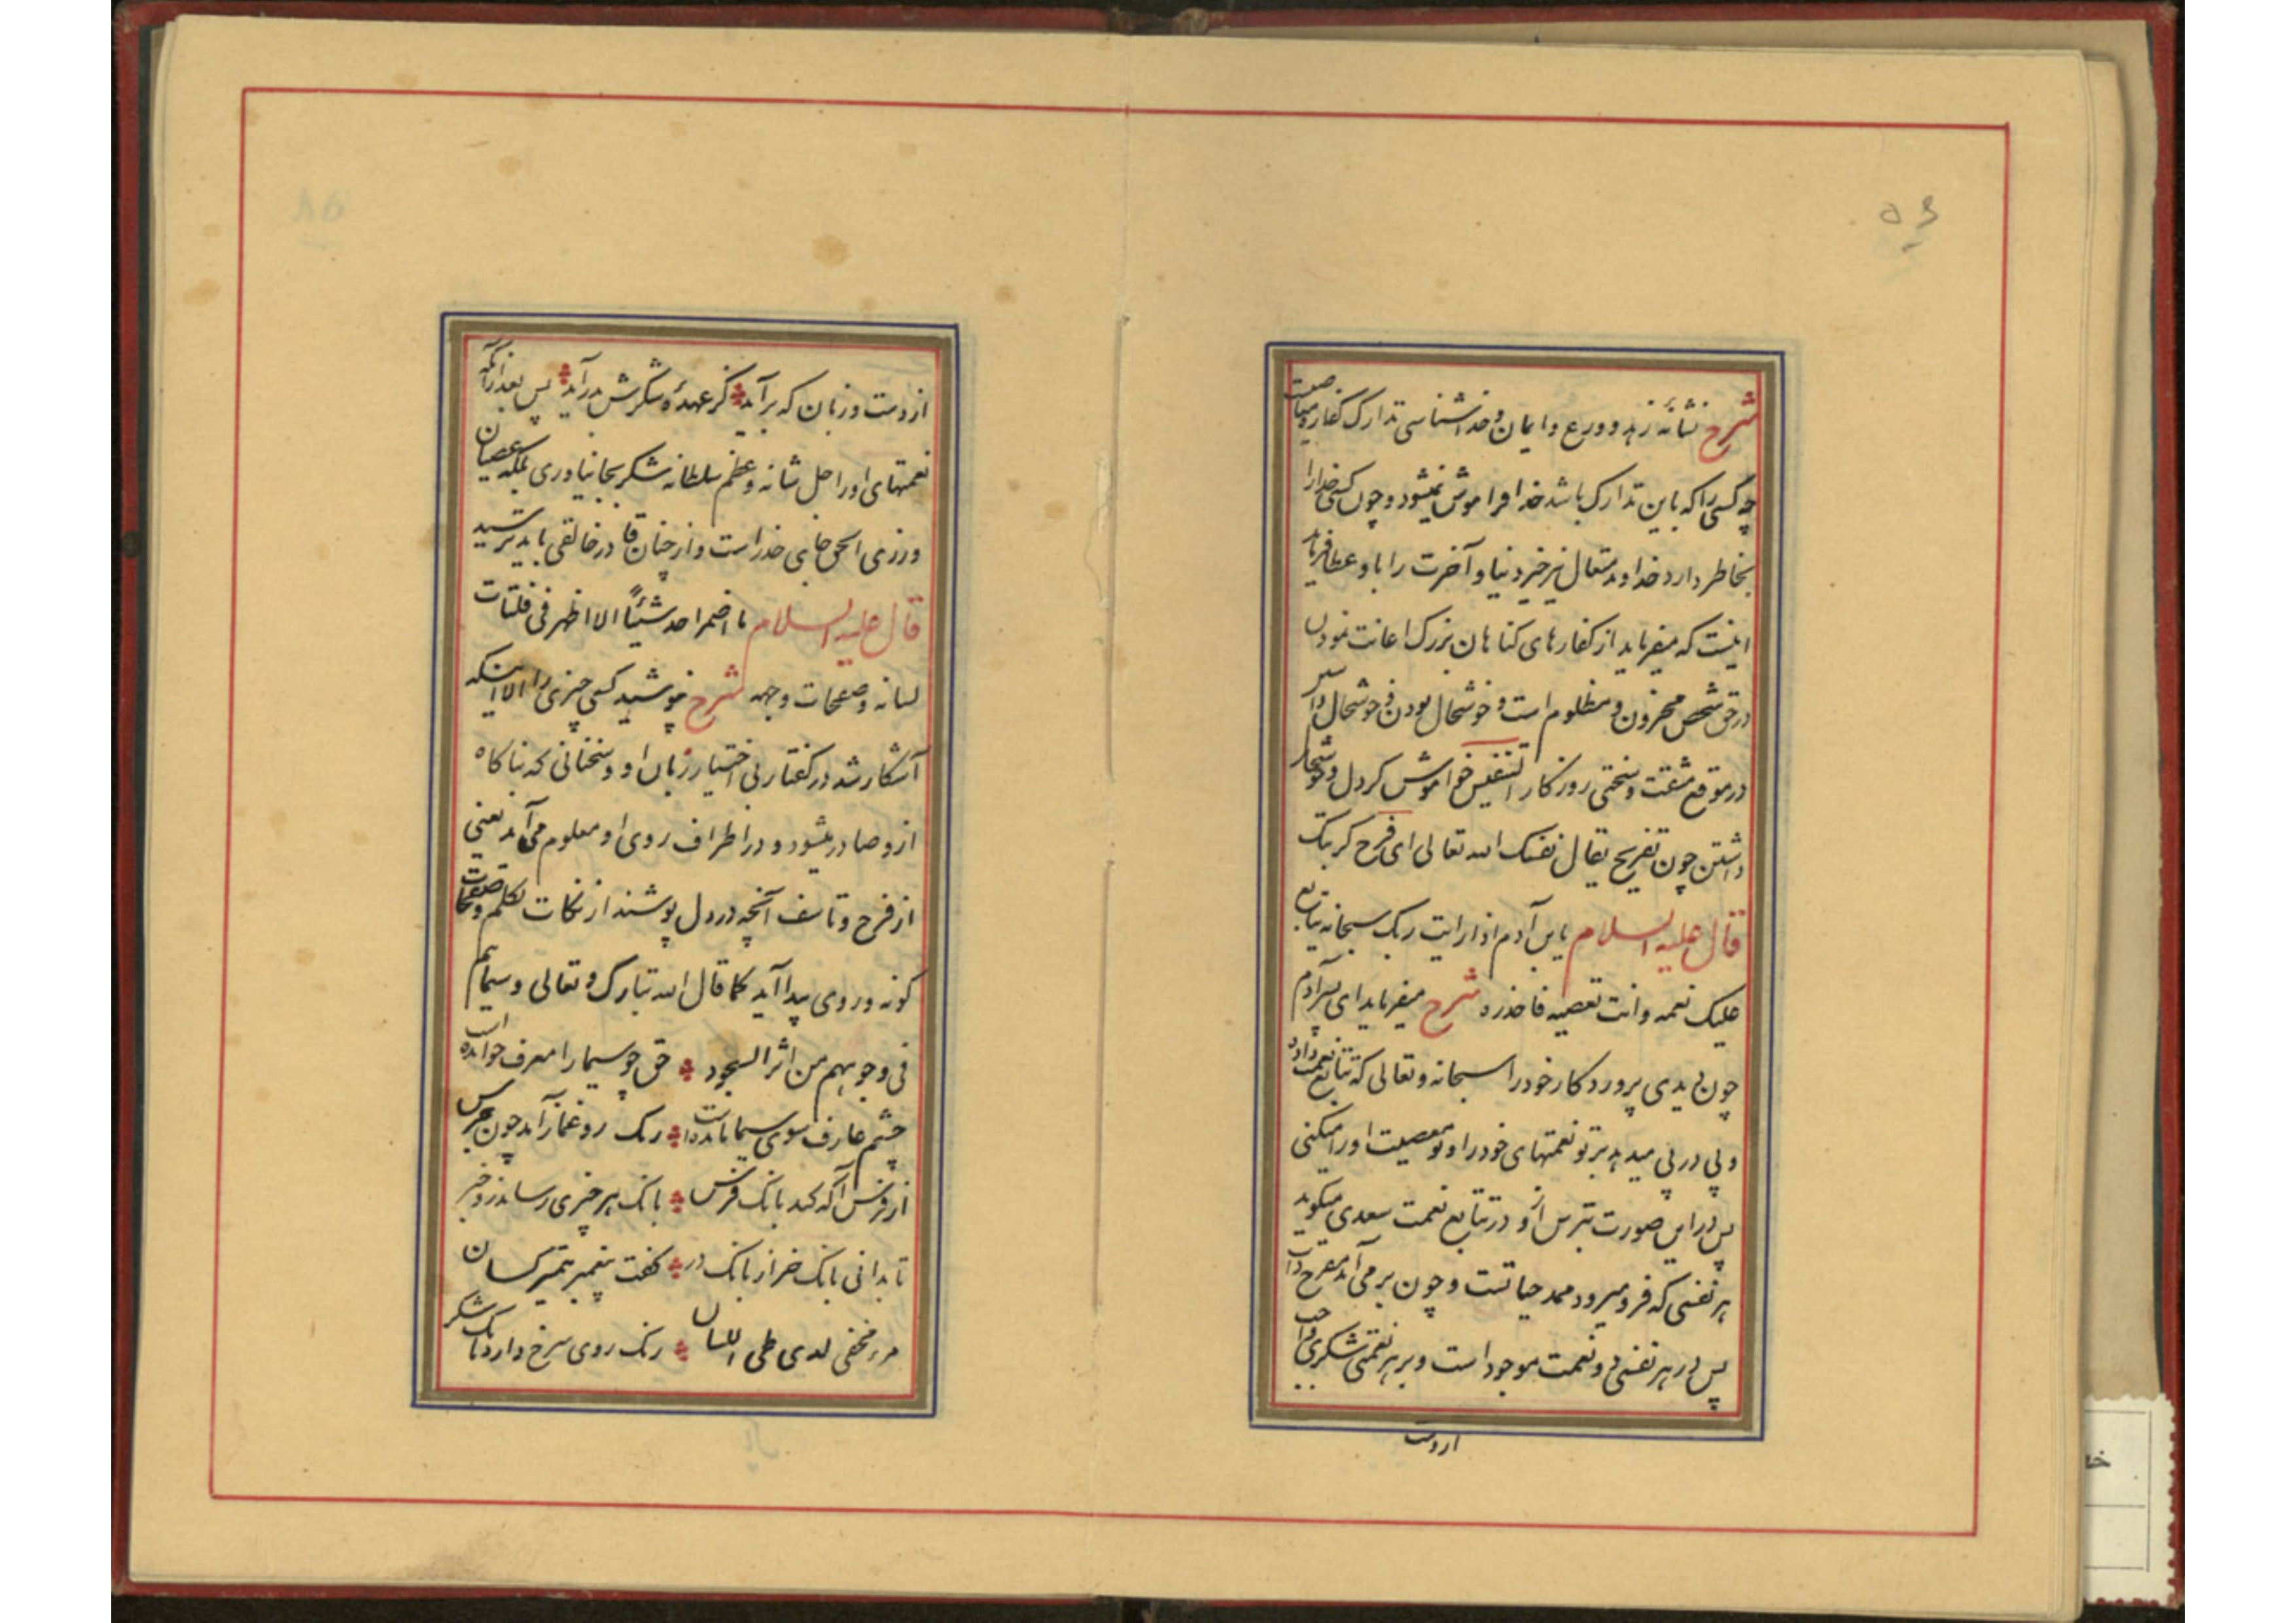 ۵۶
شرح نشانهٔ زهد و ورع و ایمان و خداشناسی تدارک کفاره معاصیست
چه کسی را که باین تدارک باشد خدا فراموش نمیشود و چون کسی خدا را
بخاطر دارد خداوند متعال نیز خیر دنیا و آخرت را باو عطا فرماید
اینست که میفرماید از کفارهای کناهان بزرک اعانت نمودن
در حق شخص محزون و مظلوم است و خوشحال بودن و خوشحال
در موقع مشقت و سختی روزکار التنفیس خواموش کردن و خوشحال
داشتن چون تفریح یقال نفسک الله تعالی ای فرح کربتک
قال علیه السلام یابن آدم اذا رایت ربک سبحانه یتابع
علیک نعمه و انت تعصیه فاحذره شرح میفرماید ای پسر آدم
چون دیدی پروردکار خود را سبحانه و تعالی که تتابع نعمت داده
و پی در پی میدهد بر تو نعمتهای خود را و تو معصیت او را میکنی
پس در این صورت بترس از او در تتابع نعمت سعدی میکوید
هر نفسی که فرو میرود ممد حیاتست و چون بر می آید مفرح ذات
پس در هر نفسی دو نعمت موجود است و بر هر نعمتی شکری واجب
از دست
از دست و زبان که برآید کز عهدهٔ شکرش بدر آید پس بعد از آنکه
نعمتهای او را جل شانه و عظم سلطانه شکر بجا نیاوری بلکه عصیان
ورزی الحق جای خدر است و از چنان قادر خالقی باید ترسید
قال علیه السلام ما اضمر احد شیئاً الا اظهر فی فلتات
لسانه و صفحات وجهه شرح نپوشید کسی چیزی را الا اینکه
آشکار شد در کفتار بی اختیار زبان او و سخنانی که بناکاه
از و صادر میشود و در اطراف روی او معلوم می آید یعنی
از فرح و تاسف آنچه در دل پوشند از نکات تکلم و صفحات
کونه و روی پیدا آید کما قال الله تبارک و تعالی و سیماهم
فی وجوههم من اثر السجود حق چو سیما را معرف خوانده است
چشم عارف سوی سیما مانده است رنک رو غماز آید چون جرس
از فرس آکه کند بانک فرس بانک هر چیزی رساند زو خبر
تا بدانی بانک خر از بانک در کفت پیغمبر بتمییز کسان
مرء مخفی لدی طی اللسان رنک روی سرخ دارد بانک شکر